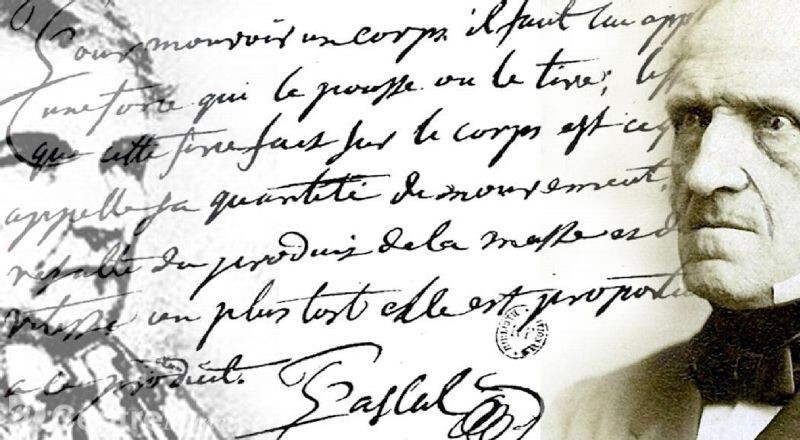 Pour mouvoir un corps il faut lui app
une force qui le pousse ou le tire; l'eff
que cette force fait sur le corps est ce q
appelle sa quantité de mouvement,
résulte du produit de la masse et d
vitesse ou plustost elle est proportio
a ce produit.
Pascal